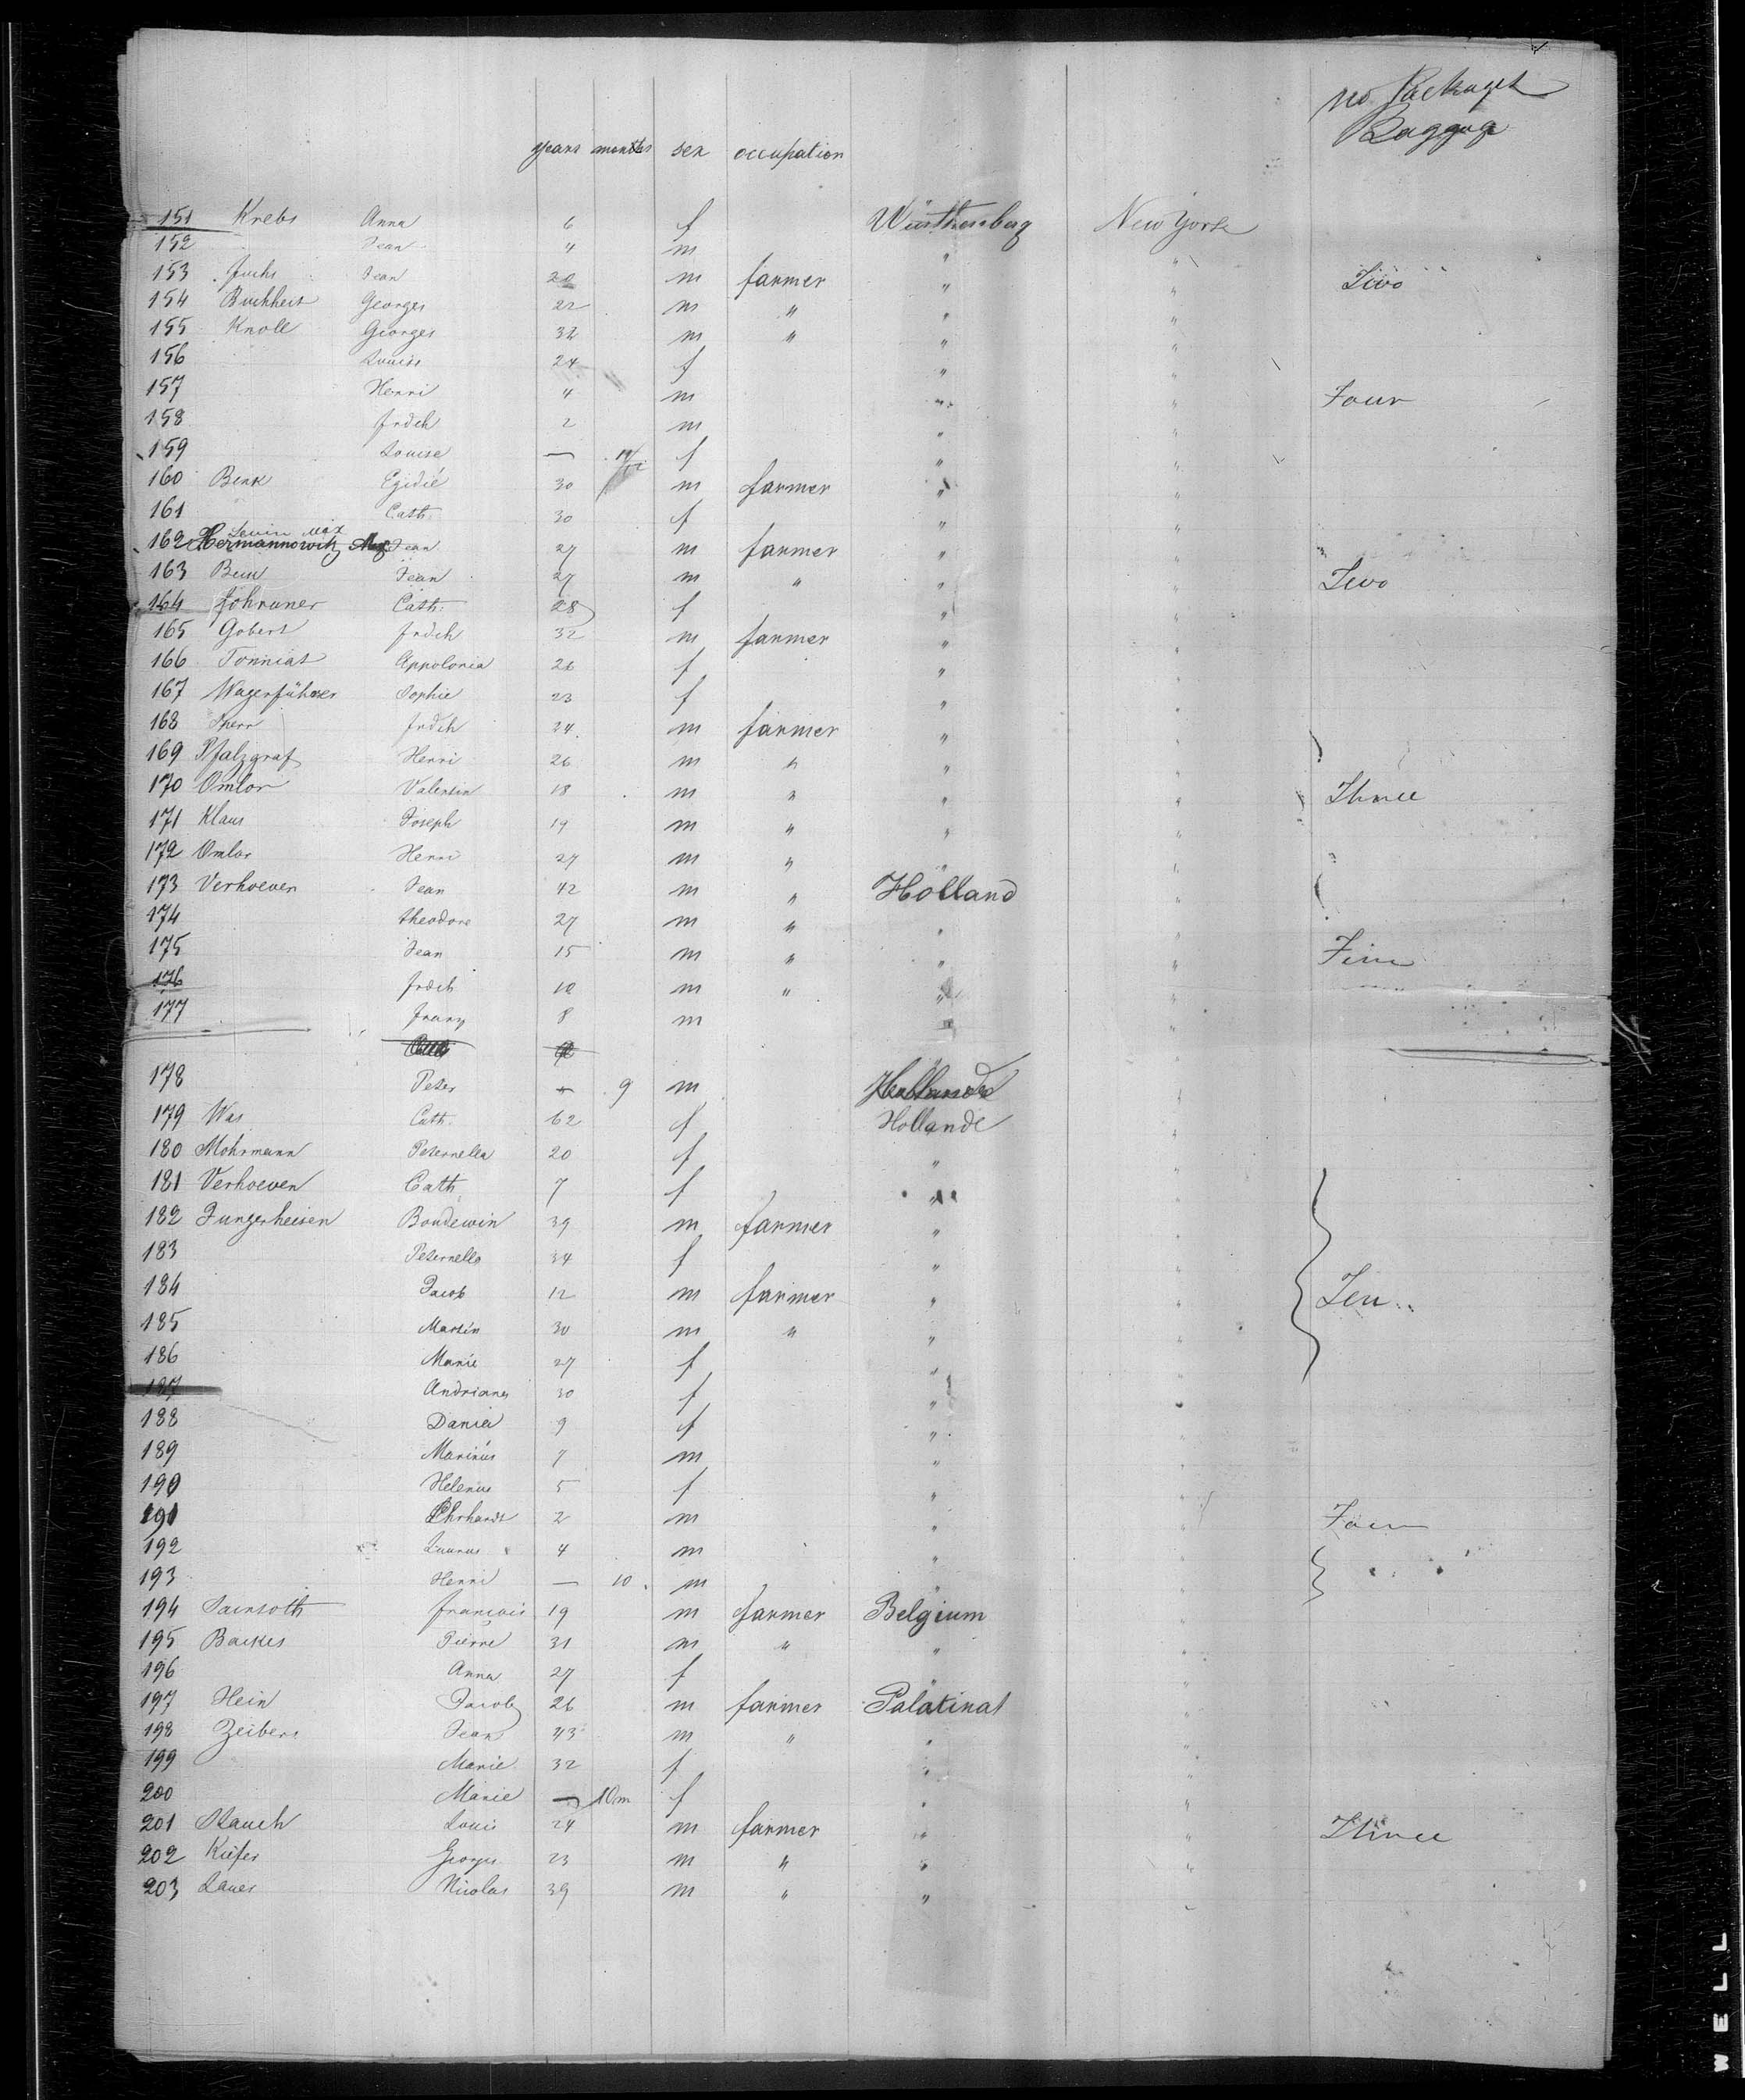 no. Packages
Baggage
years months sex occupation
151 Krebs Anna 6 f Würthemberg New York
152 Jean 4 m " "
153 Fuchs Jean 22 m farmer " " Two
154 Buchheit Georges 22 m " " "
155 Knoll Georges 32 m " " "
156 Louise 24 f " "
157 Henri 4 m " " Four
158 frdch 2 m " "
159 Louise — f " "
160 Benk Egidié 30 m farmer " "
161 Cath. 30 f " "
Levin Max
162 Hermannowitz Jean 27 m farmer " "
163 Jean 27 m " " " Two
164 Cath. 28 f " "
165 Gobert frdch 32 m farmer " "
166 Tonniat Appolonia 26 f " "
167 Wagenführer Sophie 23 f " "
168 frdch 24 m farmer " "
169 Pfalzgraf Henri 26 m " " "
170 Omlor Valentin 18 m " " " Three
171 Klaus Joseph 19 m " " "
172 Omlor Henri 27 m " " "
173 Verhoeven Jean 42 m " Holland "
174 theodore 27 m " " "
175 Jean 15 m " " "
176 frdch 10 m " " "
177 franz 8 m " "
178 Peter — 9 m Hollande "
179 Was Cath. 62 f Hollande "
180 Mohrmann Peternella 20 f " "
181 Verhoeven Cath 7 f " "
182 Jungerheisen Boudewin 39 m farmer " "
183 Peternella 34 f " "
184 Jacob 12 m farmer " " Ten
185 Martin 30 m " " "
186 Marie 27 f " "
187 Andriana 30 f " "
188 Daniel 9 f " "
189 Marinus 7 m " "
190 Helenus 5 f " "
191 Ehrhardt 2 m " " Four
192 4 m " "
193 Henri — 10 m " "
194 Sainsoth francois 19 m farmer Belgium "
195 Backes Pierre 31 m " " "
196 Anna 27 f "
197 Hein Jacob 26 m farmer Palatinat "
198 Zeibers Jean 43 m " " "
199 Marie 32 f " "
200 Marie — 10m f " "
201 Stauch Louis 24 m farmer " " Three
202 Kiefer Georges 23 m " " "
203 Lauer Nicolas 39 m " " "
WELL